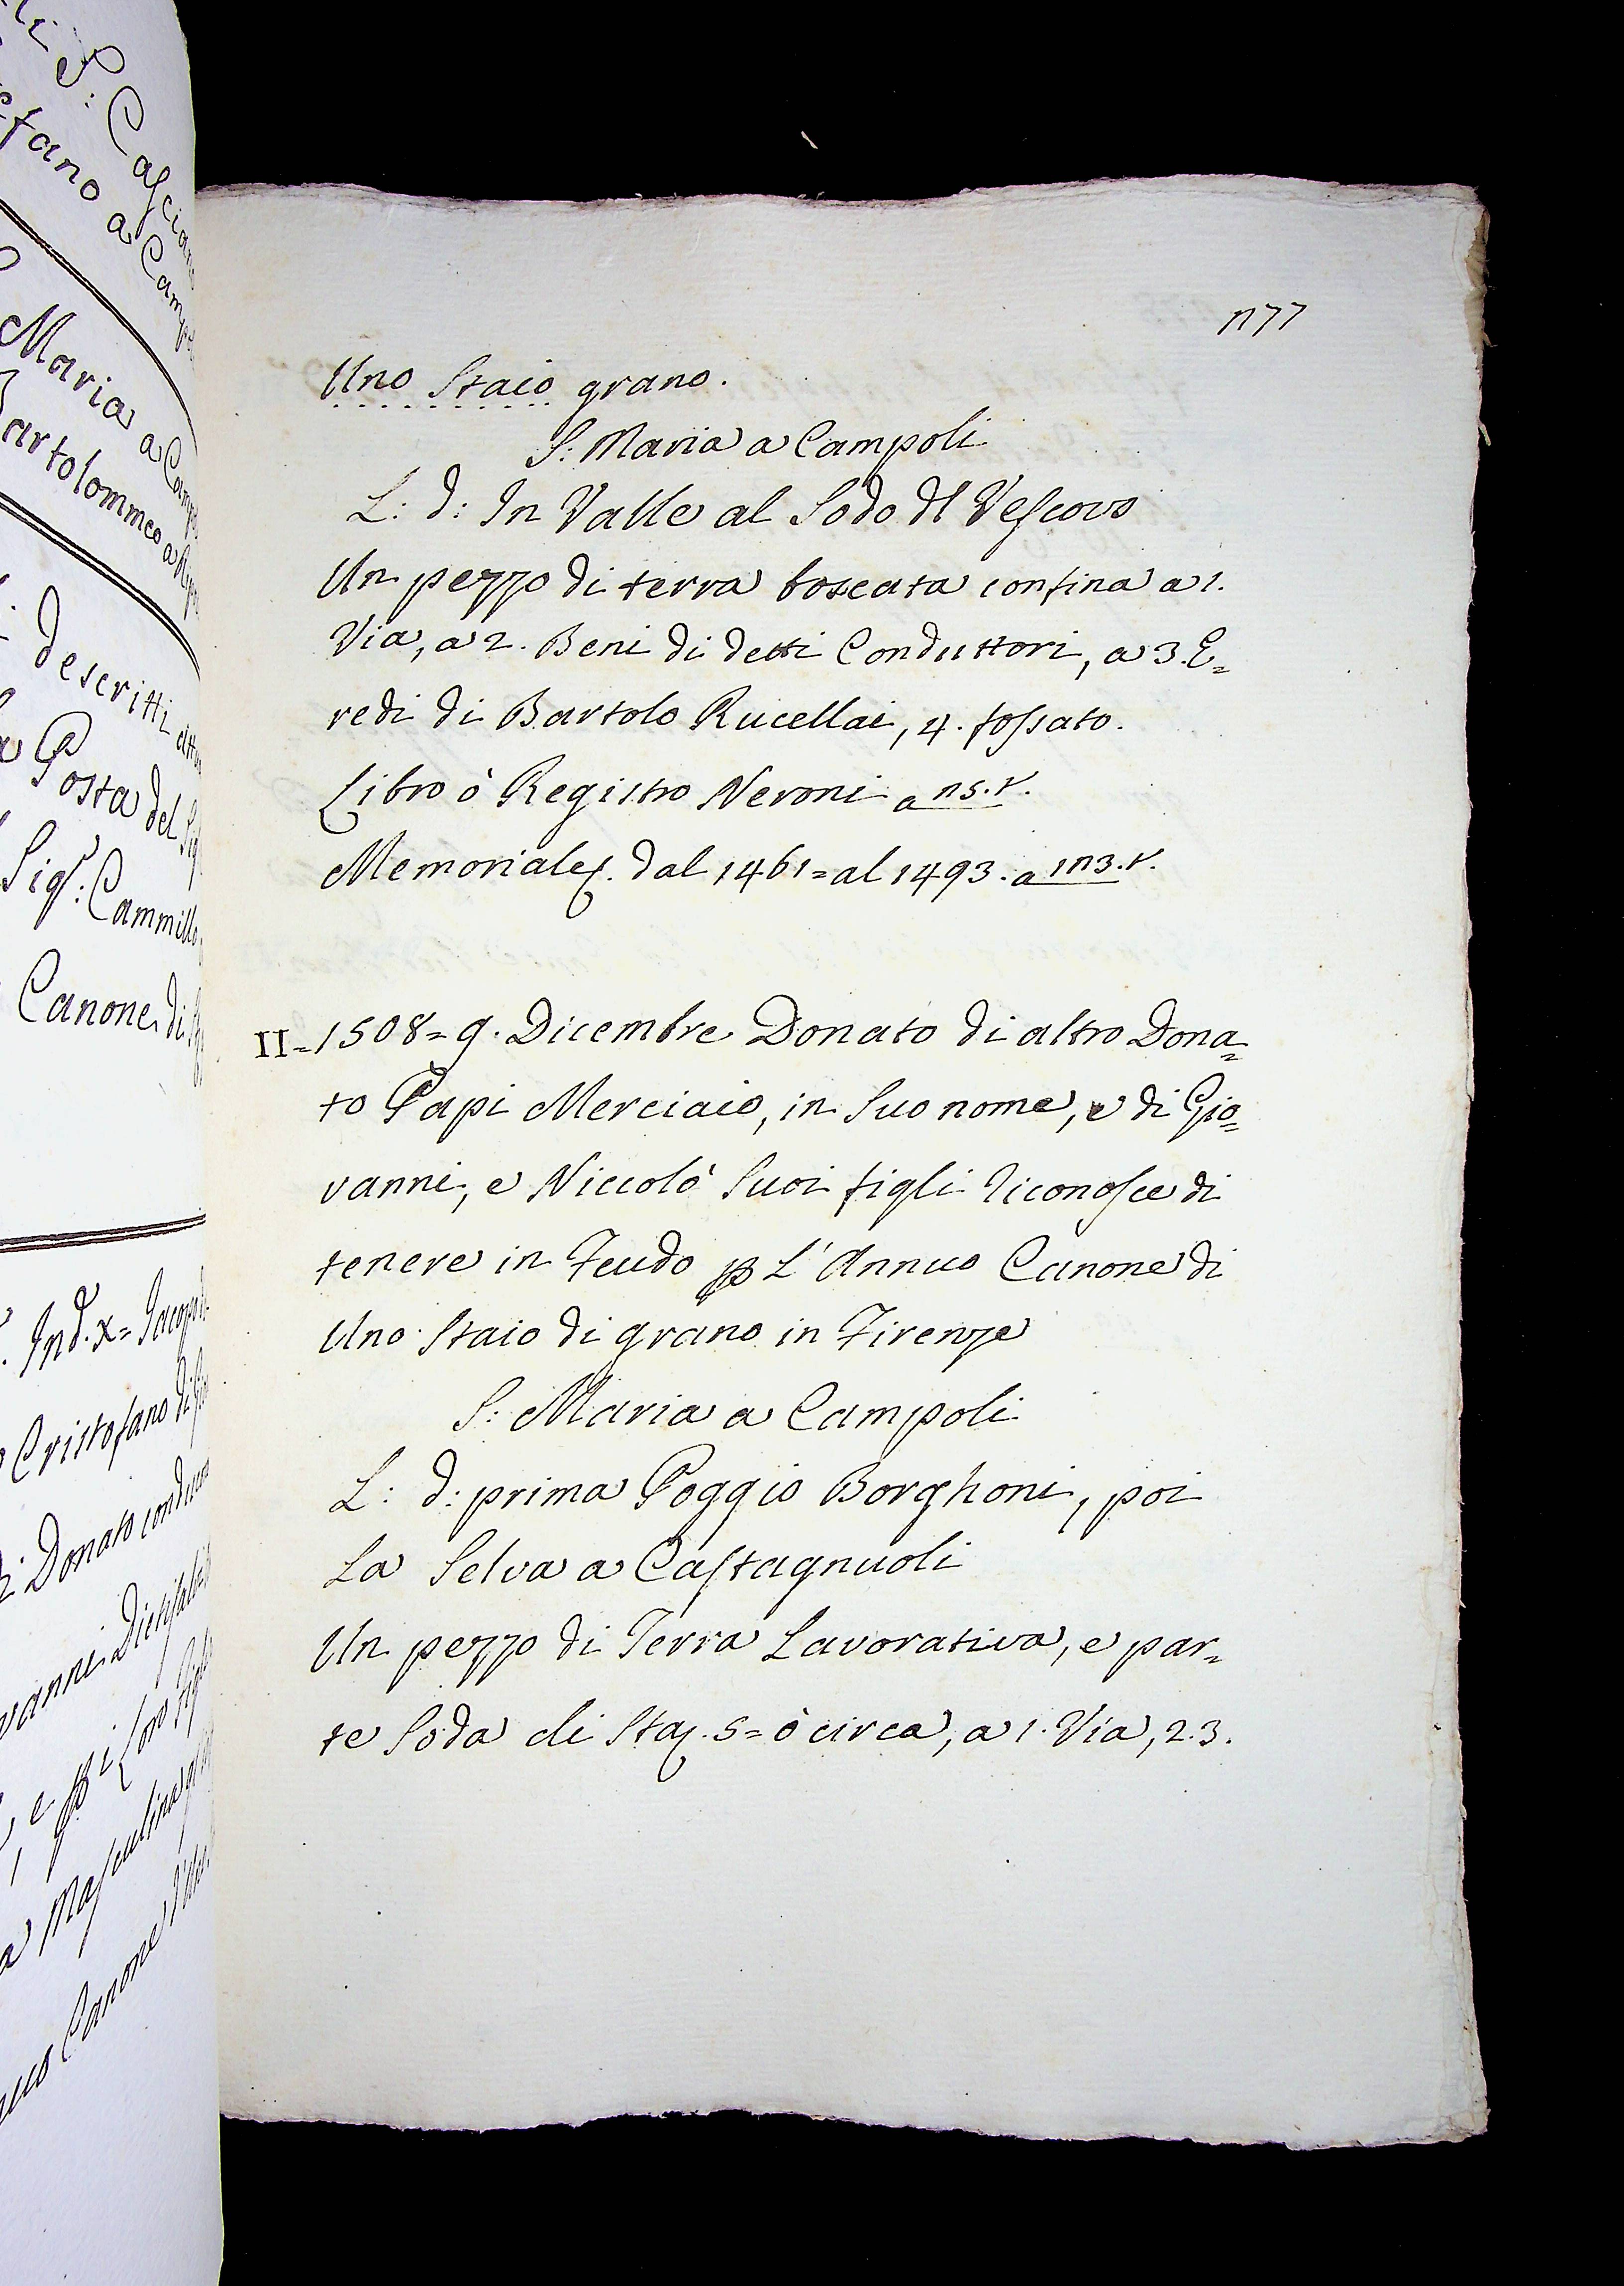 S: Casciano
Stefano a Campoli
Maria a Campoli
Bartolommeo a
descritti
Posta del
Sigr: Cammillo
Canone di
Ind. X= Jacopo
Cristofano di
Donato
vanni
e p i loro figli
Masculina
Canone
Uno Staio grano.
S: Maria a Campoli
L: d: In Valle al Sodo dl Vescovo
Un pezzo di terra boscata confina a 1.
Via, a 2. Beni di detti Conduttori, a 3. E=
redi di Bartolo Rucellai, 4. fossato.
Libro ò Registro Neroni a
Memoriale. dal 1461= al 1493. a
II= 1508= 9. Dicembre Donato di altro Dona=
to Papi Merciaio, in Suo nome, e di Gio=
vanni, e Niccolò Suoi figli riconosce di
tenere in Feudo p L'Annuo Canone di
Uno Staio di grano in Firenze
S: Maria a Campoli
L: d: prima Poggio Borghoni, poi
La Selva a Castagnuoli
Un pezzo di Terra Lavorativa, e par=
te Soda di Sta. 5= ò circa, a 1. Via, 2. 3.